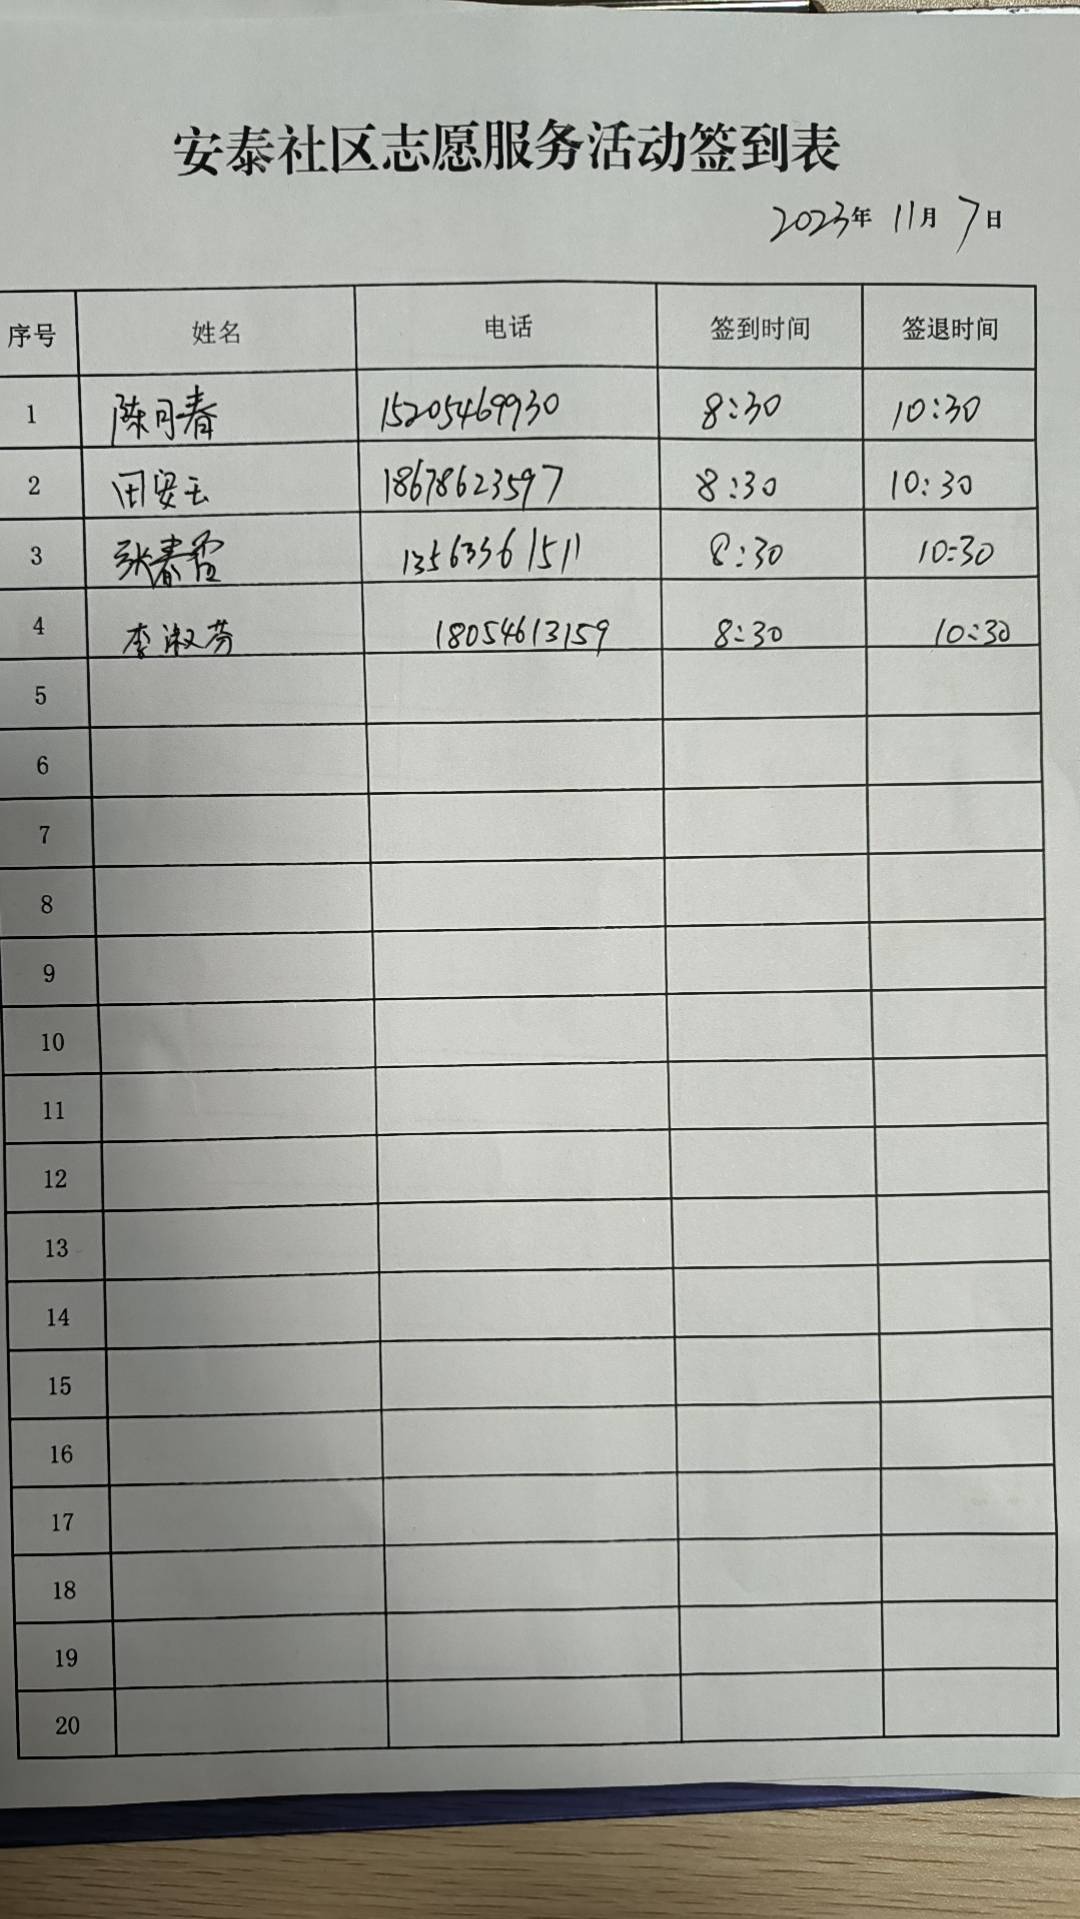 安泰社区志愿服务活动签到表
2023年 11月 7日
序号 姓名 电话 签到时间 签退时间
1 陈月春 15205469930 8:30 10:30
2 田安玉 18678623597 8:30 10:30
3 张春霞 13563361511 8:30 10:30
4 李淑芬 18054613159 8:30 10:30
5
6
7
8
9
10
11
12
13
14
15
16
17
18
19
20